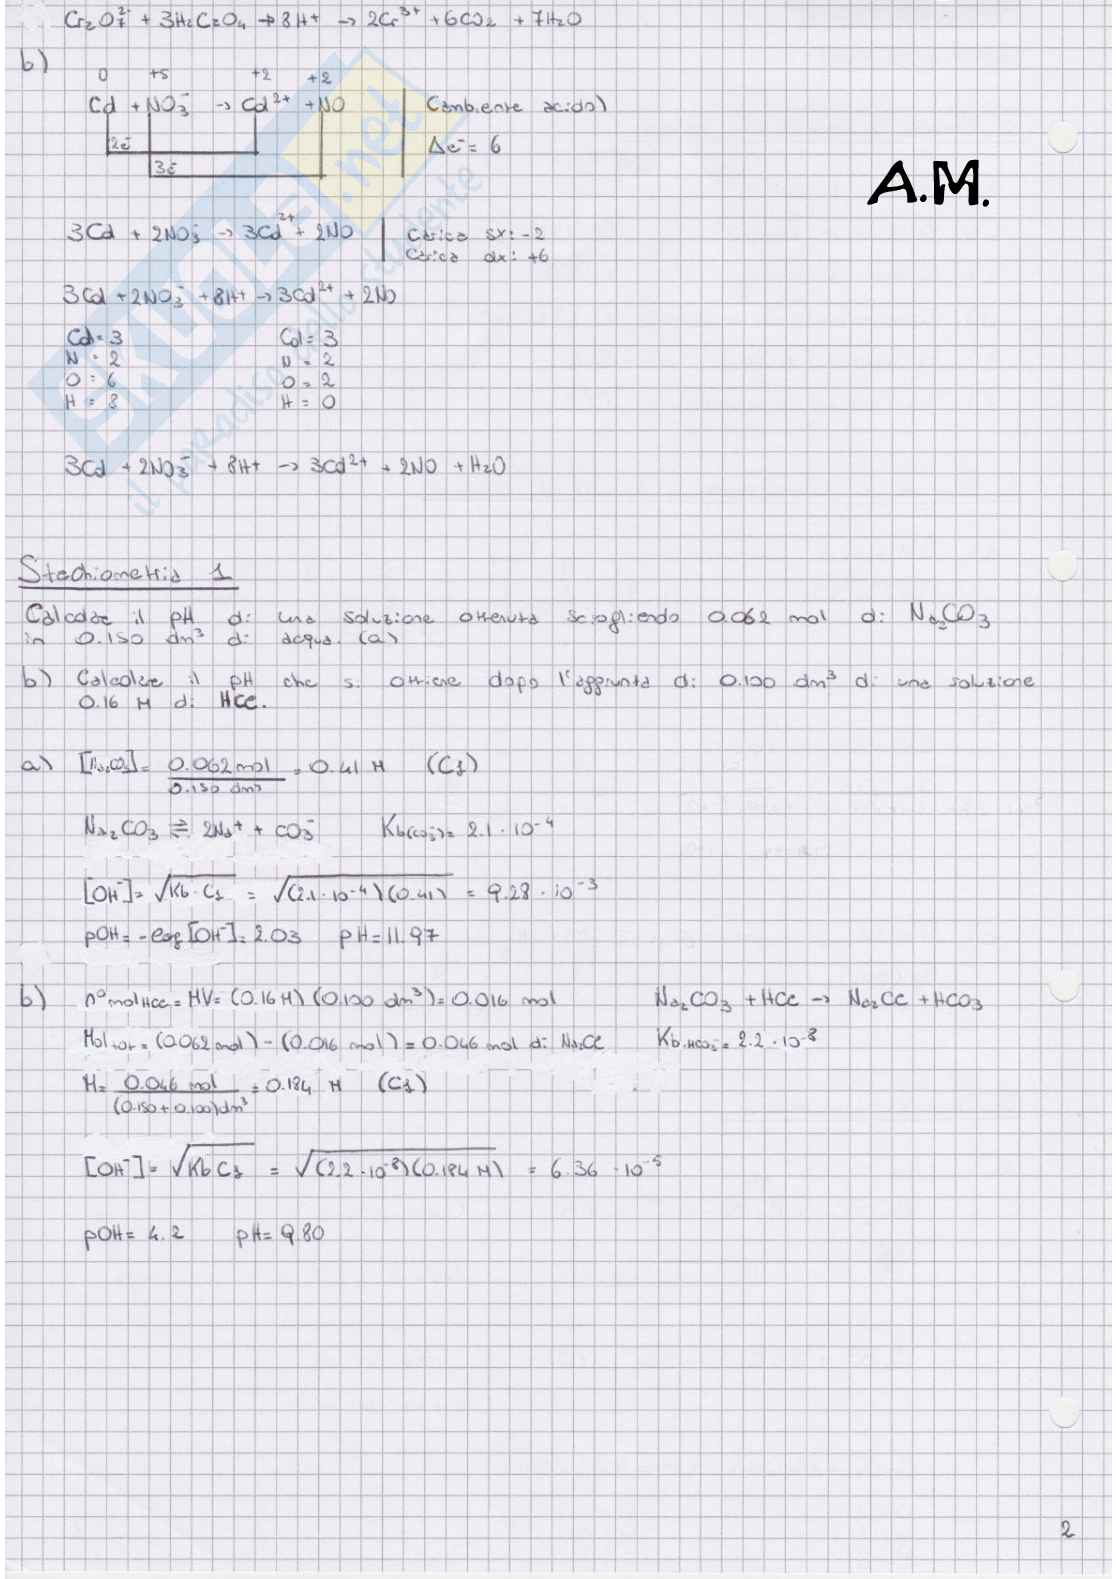 Cr₂O₇²⁻ + 3H₂C₂O₄ + 8H+ → 2Cr³⁺ + 6CO₂ + 7H₂O
b)
0 +5 +2 +2
Cd + NO₃⁻ → Cd²⁺ + NO (ambiente acido)
2e⁻ Δe⁻ = 6
3e⁻
A.M.
3Cd + 2NO₃⁻ → 3Cd²⁺ + 2NO Carica sx: -2
Carica dx: +6
3Cd + 2NO₃⁻ + 8H+ → 3Cd²⁺ + 2NO
Cd = 3 Cd = 3
N = 2 N = 2
O = 6 O = 2
H = 8 H = 0
3Cd + 2NO₃⁻ + 8H+ → 3Cd²⁺ + 2NO + H₂O
SKUOLA.net
il paradiso dello studente
Stechiometria 1
Calcolare il pH di una soluzione ottenuta sciogliendo 0.062 mol di Na₂CO₃
in 0.150 dm³ di acqua. (a)
b) Calcolare il pH che si ottiene dopo l'aggiunta di 0.100 dm³ di una soluzione
0.16 M di HCl.
a) [Na₂CO₃] = 0.062 mol = 0.41 M (C₁)
0.150 dm³
Na₂CO₃ ⇌ 2Na⁺ + CO₃⁻ Kb(CO₃⁻) = 2.1 · 10⁻⁴
[OH⁻] = √Kb · C₁ = √(2.1 · 10⁻⁴)(0.41) = 9.28 · 10⁻³
pOH = -log [OH⁻] = 2.03 pH = 11.97
b) n° mol HCl = MV = (0.16 M) (0.100 dm³) = 0.016 mol Na₂CO₃ + HCl → Na₂Cl + HCO₃
Mol tot = (0.062 mol) - (0.016 mol) = 0.046 mol di Na₂Cl Kb HCO₃⁻ = 2.2 · 10⁻⁸
M = 0.046 mol = 0.184 M (C₁)
(0.150 + 0.100) dm³
[OH⁻] = √Kb C₁ = √(2.2 · 10⁻⁸)(0.184 M) = 6.36 · 10⁻⁵
pOH = 4.2 pH = 9.80
2